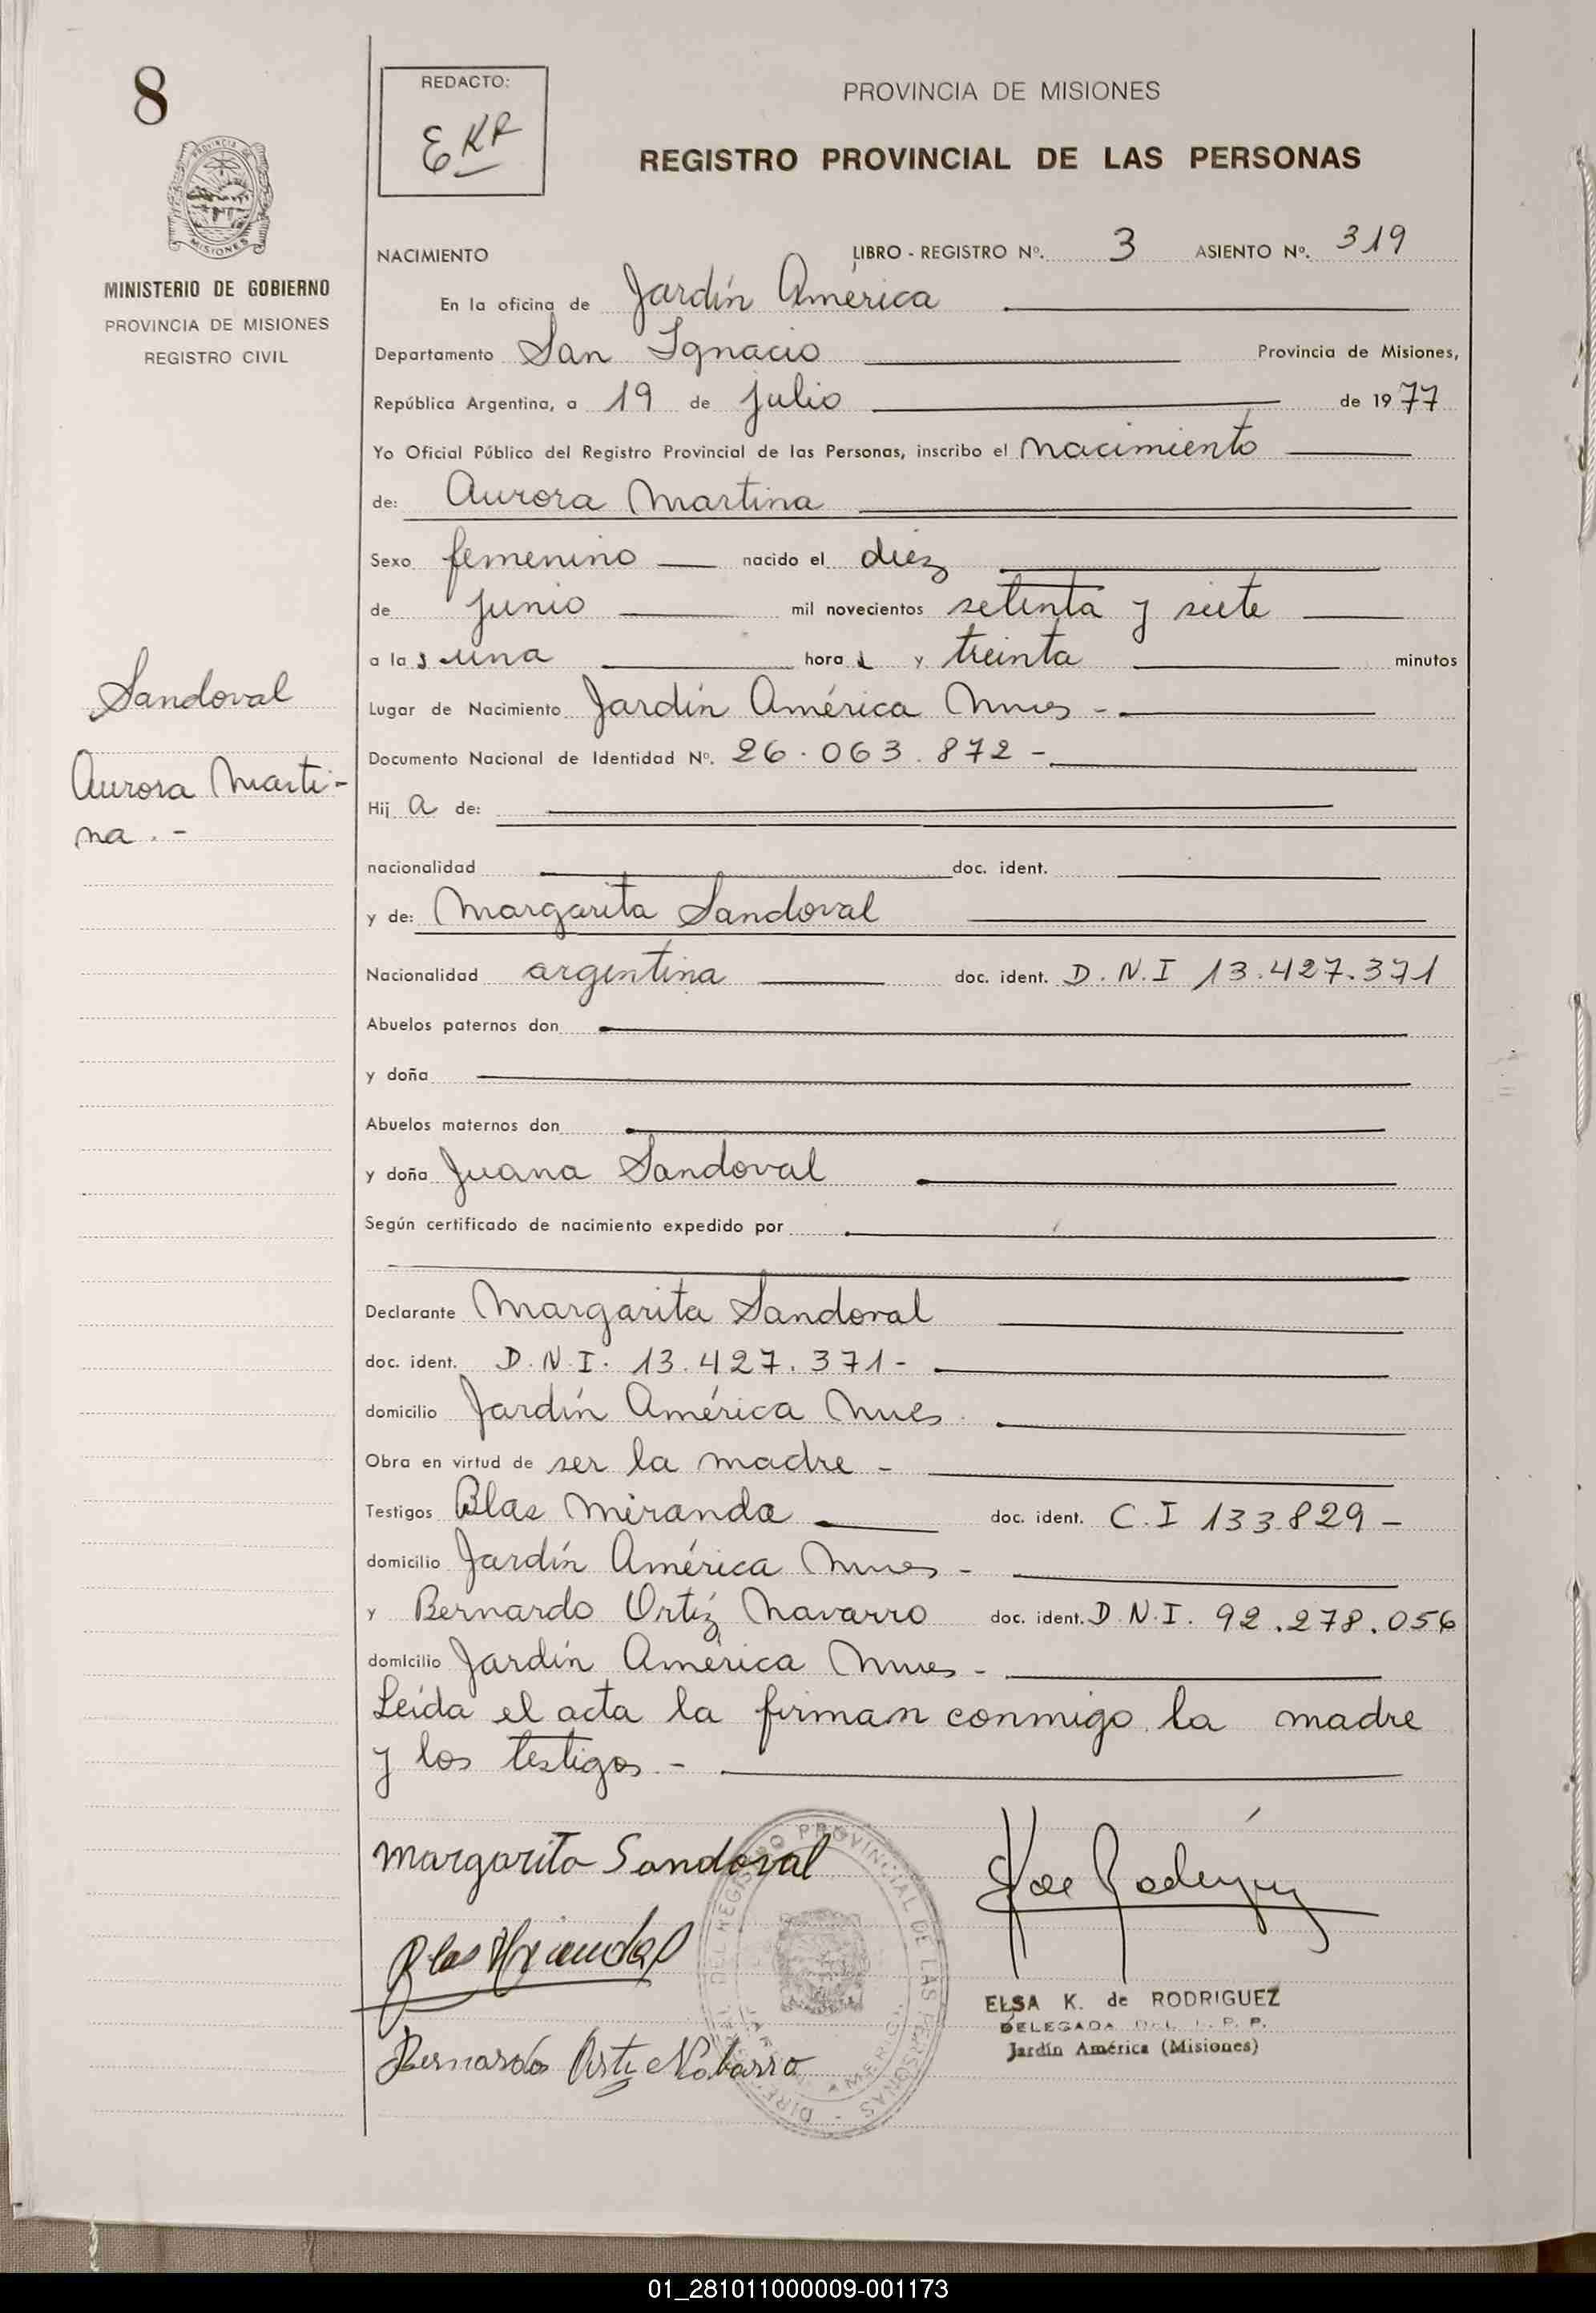 8
REDACTO:
EKR
PROVINCIA DE MISIONES
REGISTRO PROVINCIAL DE LAS PERSONAS
MINISTERIO DE GOBIERNO
PROVINCIA DE MISIONES
REGISTRO CIVIL
Sandoval
Aurora Marti-
na.-
NACIMIENTO LIBRO - REGISTRO Nº. 3 ASIENTO Nº. 319
En la oficina de Jardín América
Departamento San Ignacio Provincia de Misiones,
República Argentina, a 19 de julio de 1977
Yo Oficial Público del Registro Provincial de las Personas, inscribo el nacimiento
de: Aurora Martina
Sexo femenino nacido el diez
de junio mil novecientos setenta y siete
a la s una hora y treinta minutos
Lugar de Nacimiento Jardín América Mnes -
Documento Nacional de Identidad Nº. 26.063.872 -
Hij a de:
nacionalidad doc. ident.
y de: Margarita Sandoval
Nacionalidad argentina doc. ident. D.N.I 13.427.371
Abuelos paternos don
y doña
Abuelos maternos don
y doña Juana Sandoval
Según certificado de nacimiento expedido por
Declarante Margarita Sandoval
doc. ident. D.N.I. 13.427.371-
domicilio Jardín América Mnes.
Obra en virtud de ser la madre -
Testigos Blas Miranda doc. ident. C.I 133.829 -
domicilio Jardín América Mnes -
y Bernardo Ortíz Navarro doc. ident. D.N.I. 92.278.056
domicilio Jardín América Mnes -
Leída el acta la firman conmigo la madre
y los testigos.-
Margarita Sandoval
Blas Miranda
Bernardo Ortiz Nabarro
ELSA K. de RODRIGUEZ
DELEGADA DEL R. P. P.
Jardín América (Misiones)
01_281011000009-001173